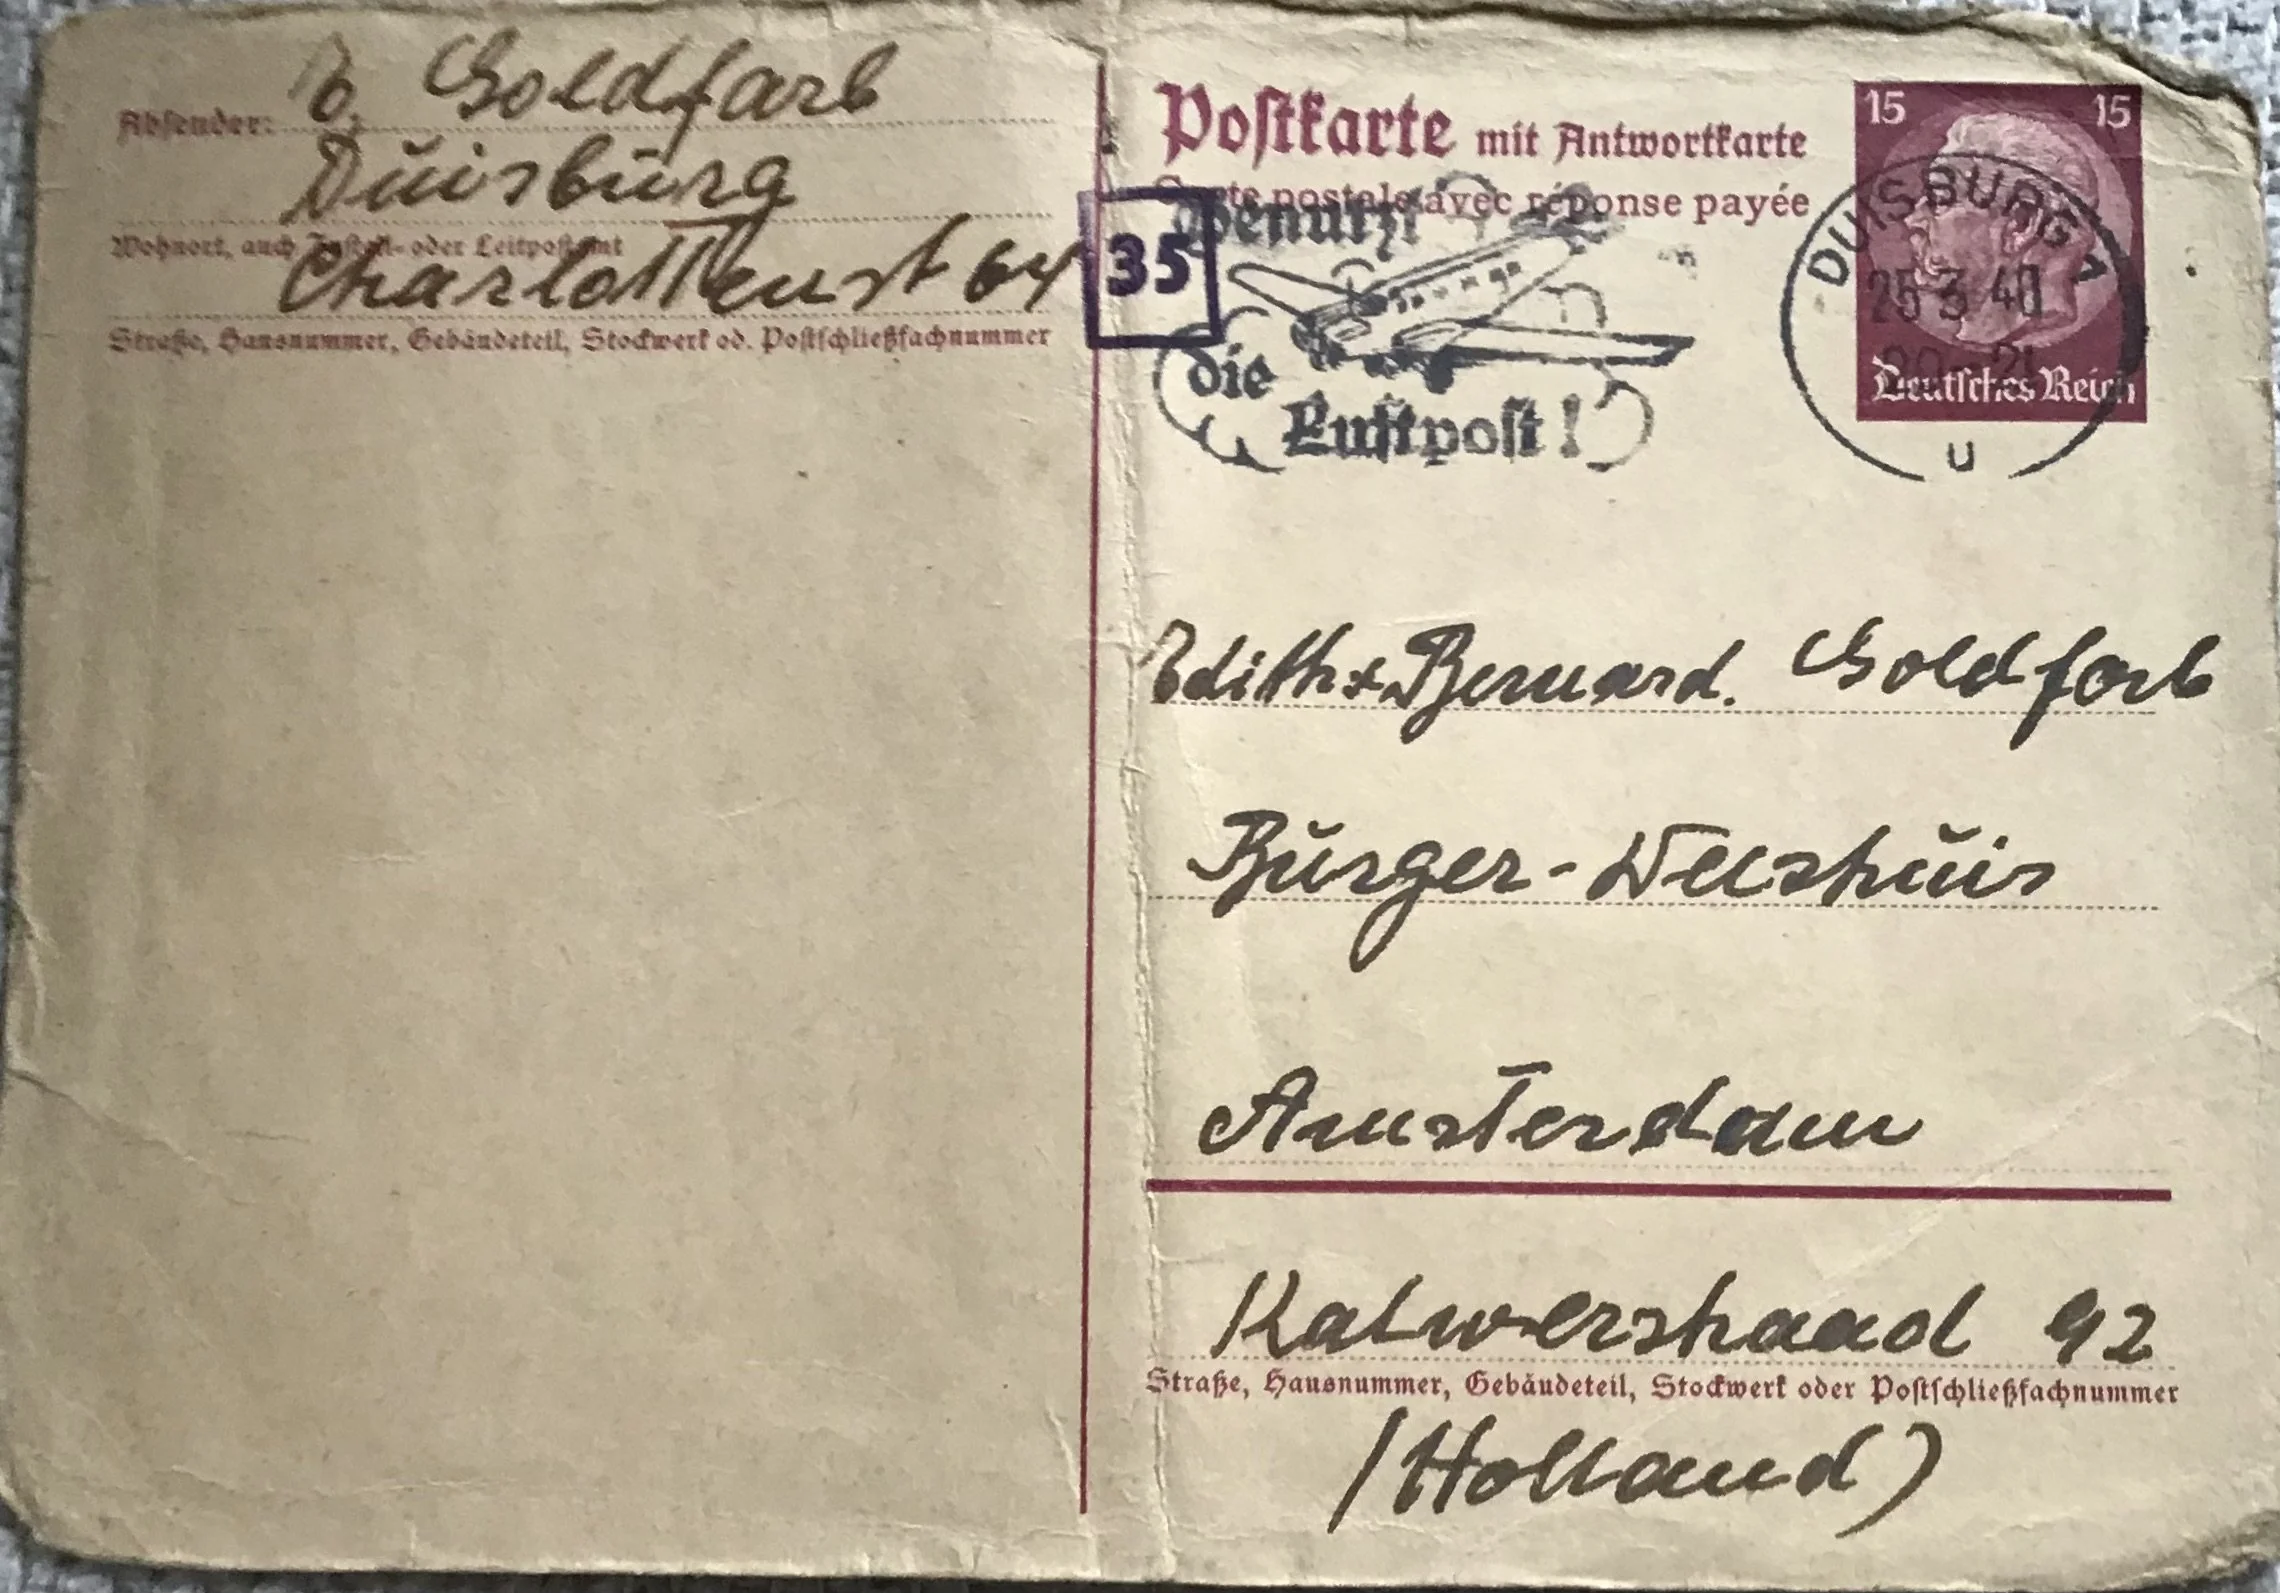 Absender: B. Goldfarb
Duisburg
Wohnort, auch Zustell- oder Leitpostamt
Charlottenst 64
Straße, Hausnummer, Gebäudeteil, Stockwerk od. Postschließfachnummer
35
Postkarte mit Antwortkarte
Carte postale avec réponse payée
Benutzt
die
Luftpost!
15 15
Deutsches Reich
DUISBURG 1
25.3.40
20-21
u
Edith + Bernard. Goldfarb
Bürger-Weeshuis
Amsterdam
Kalwerstraad 92
Straße, Hausnummer, Gebäudeteil, Stockwerk oder Postschließfachnummer
(Holland)